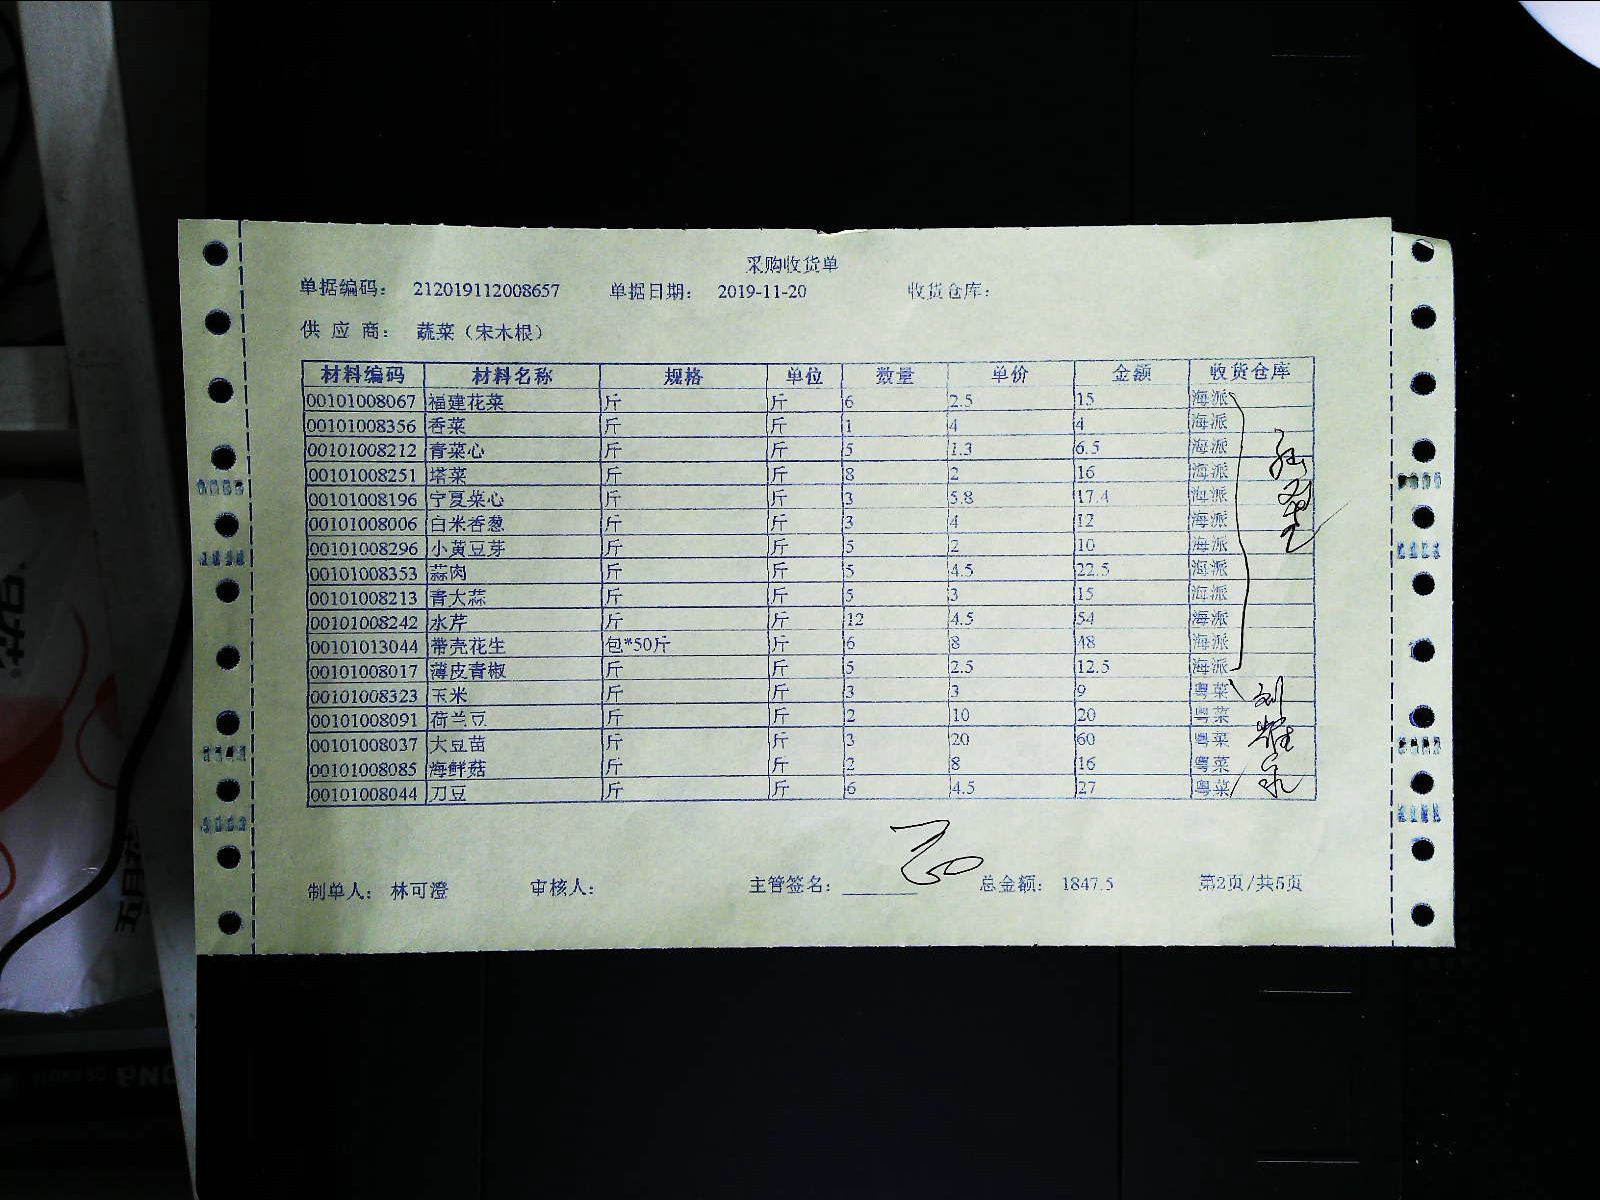 采购收货单
单据编码： 212019112008657 单据日期： 2019-11-20 收货仓库：
供 应 商： 蔬菜（宋木根）
材料编码 材料名称 规格 单位 数量 单价 金额 收货仓库
00101008067 福建花菜 斤 斤 6 2.5 15 海派
00101008356 香菜 斤 斤 1 4 4 海派
00101008212 青菜心 斤 斤 5 1.3 6.5 海派
00101008251 塔菜 斤 斤 8 2 16 海派
00101008196 宁夏菜心 斤 斤 3 5.8 17.4 海派
00101008006 白米香葱 斤 斤 3 4 12 海派
00101008296 小黄豆芽 斤 斤 5 2 10 海派
00101008353 蒜肉 斤 斤 5 4.5 22.5 海派
00101008213 青大蒜 斤 斤 5 3 15 海派
00101008242 水芹 斤 斤 12 4.5 54 海派
00101013044 带壳花生 包*50斤 斤 6 8 48 海派
00101008017 薄皮青椒 斤 斤 5 2.5 12.5 海派
00101008323 玉米 斤 斤 3 3 9 粤菜
00101008091 荷兰豆 斤 斤 2 10 20 粤菜
00101008037 大豆苗 斤 斤 3 20 60 粤菜
00101008085 海鲜菇 斤 斤 2 8 16 粤菜
00101008044 刀豆 斤 斤 6 4.5 27 粤菜
制单人： 林可澄 审核人： 主管签名： 总金额： 1847.5 第2页/共5页